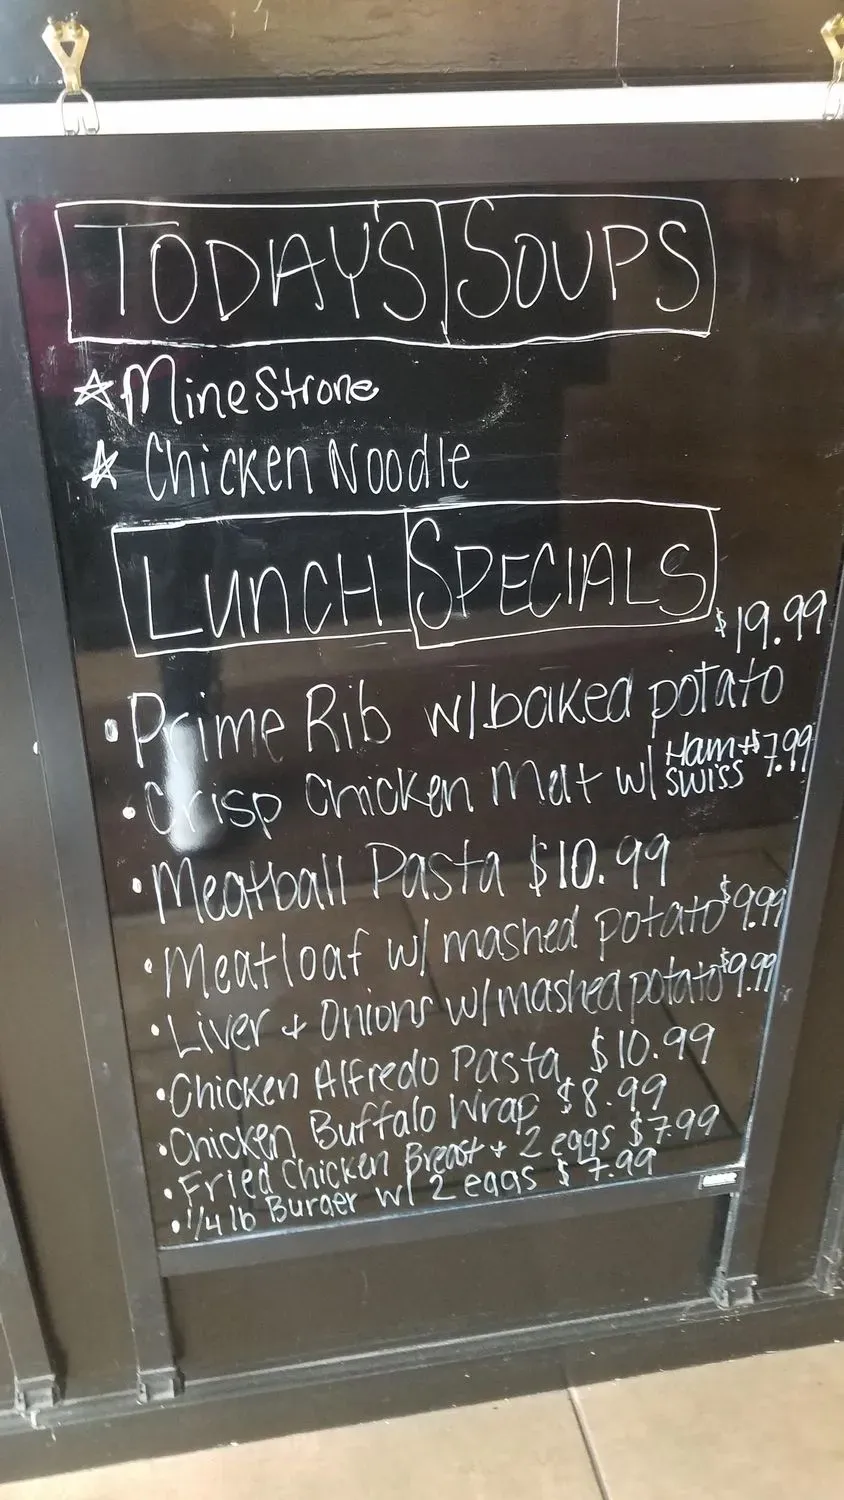 TODAY'S SOUPS
MineStrone
Chicken Noodle
LUNCH SPECIALS
$19.99
Prime Rib w/baked potato
Crisp Chicken Melt w/ Ham + Swiss $7.99
Meatball Pasta $10.99
Meatloaf w/ mashed potato $9.99
Liver + Onions w/mashed potato $9.99
Chicken Alfredo Pasta $10.99
Chicken Buffalo Wrap $8.99
Fried Chicken Breast + 2 eggs $7.99
1/4 lb Burger w/ 2 eggs $7.99